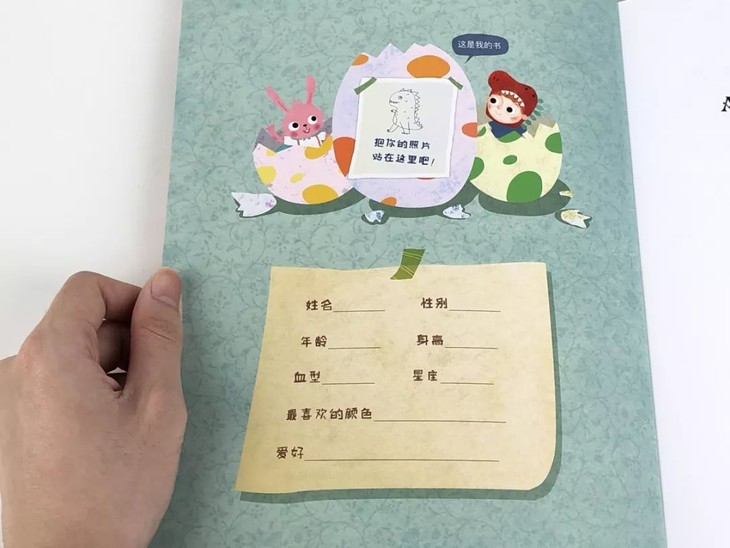 这是我的书
把你的照片
贴在这里吧!
姓名______ 性别______
年龄______ 身高______
血型______ 星座______
最喜欢的颜色______
爱好______